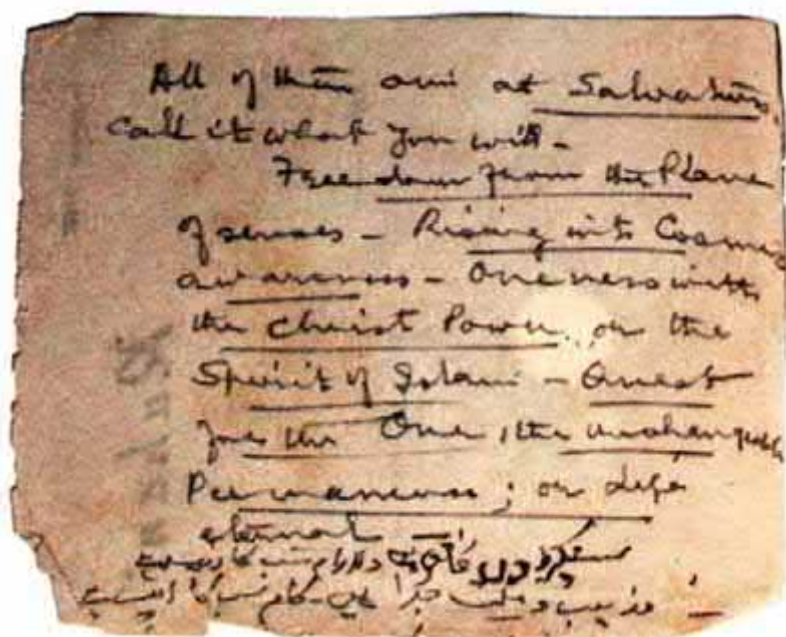 All of them aim at Salvation.
Call it what you will -
Freedom from the Plane
of senses - Rising into Cosmic
awareness - Oneness with
the Christ Power or the
Spirit of Islam - Quest
for the One, the unchangeable
Permanence; or Life
eternal -